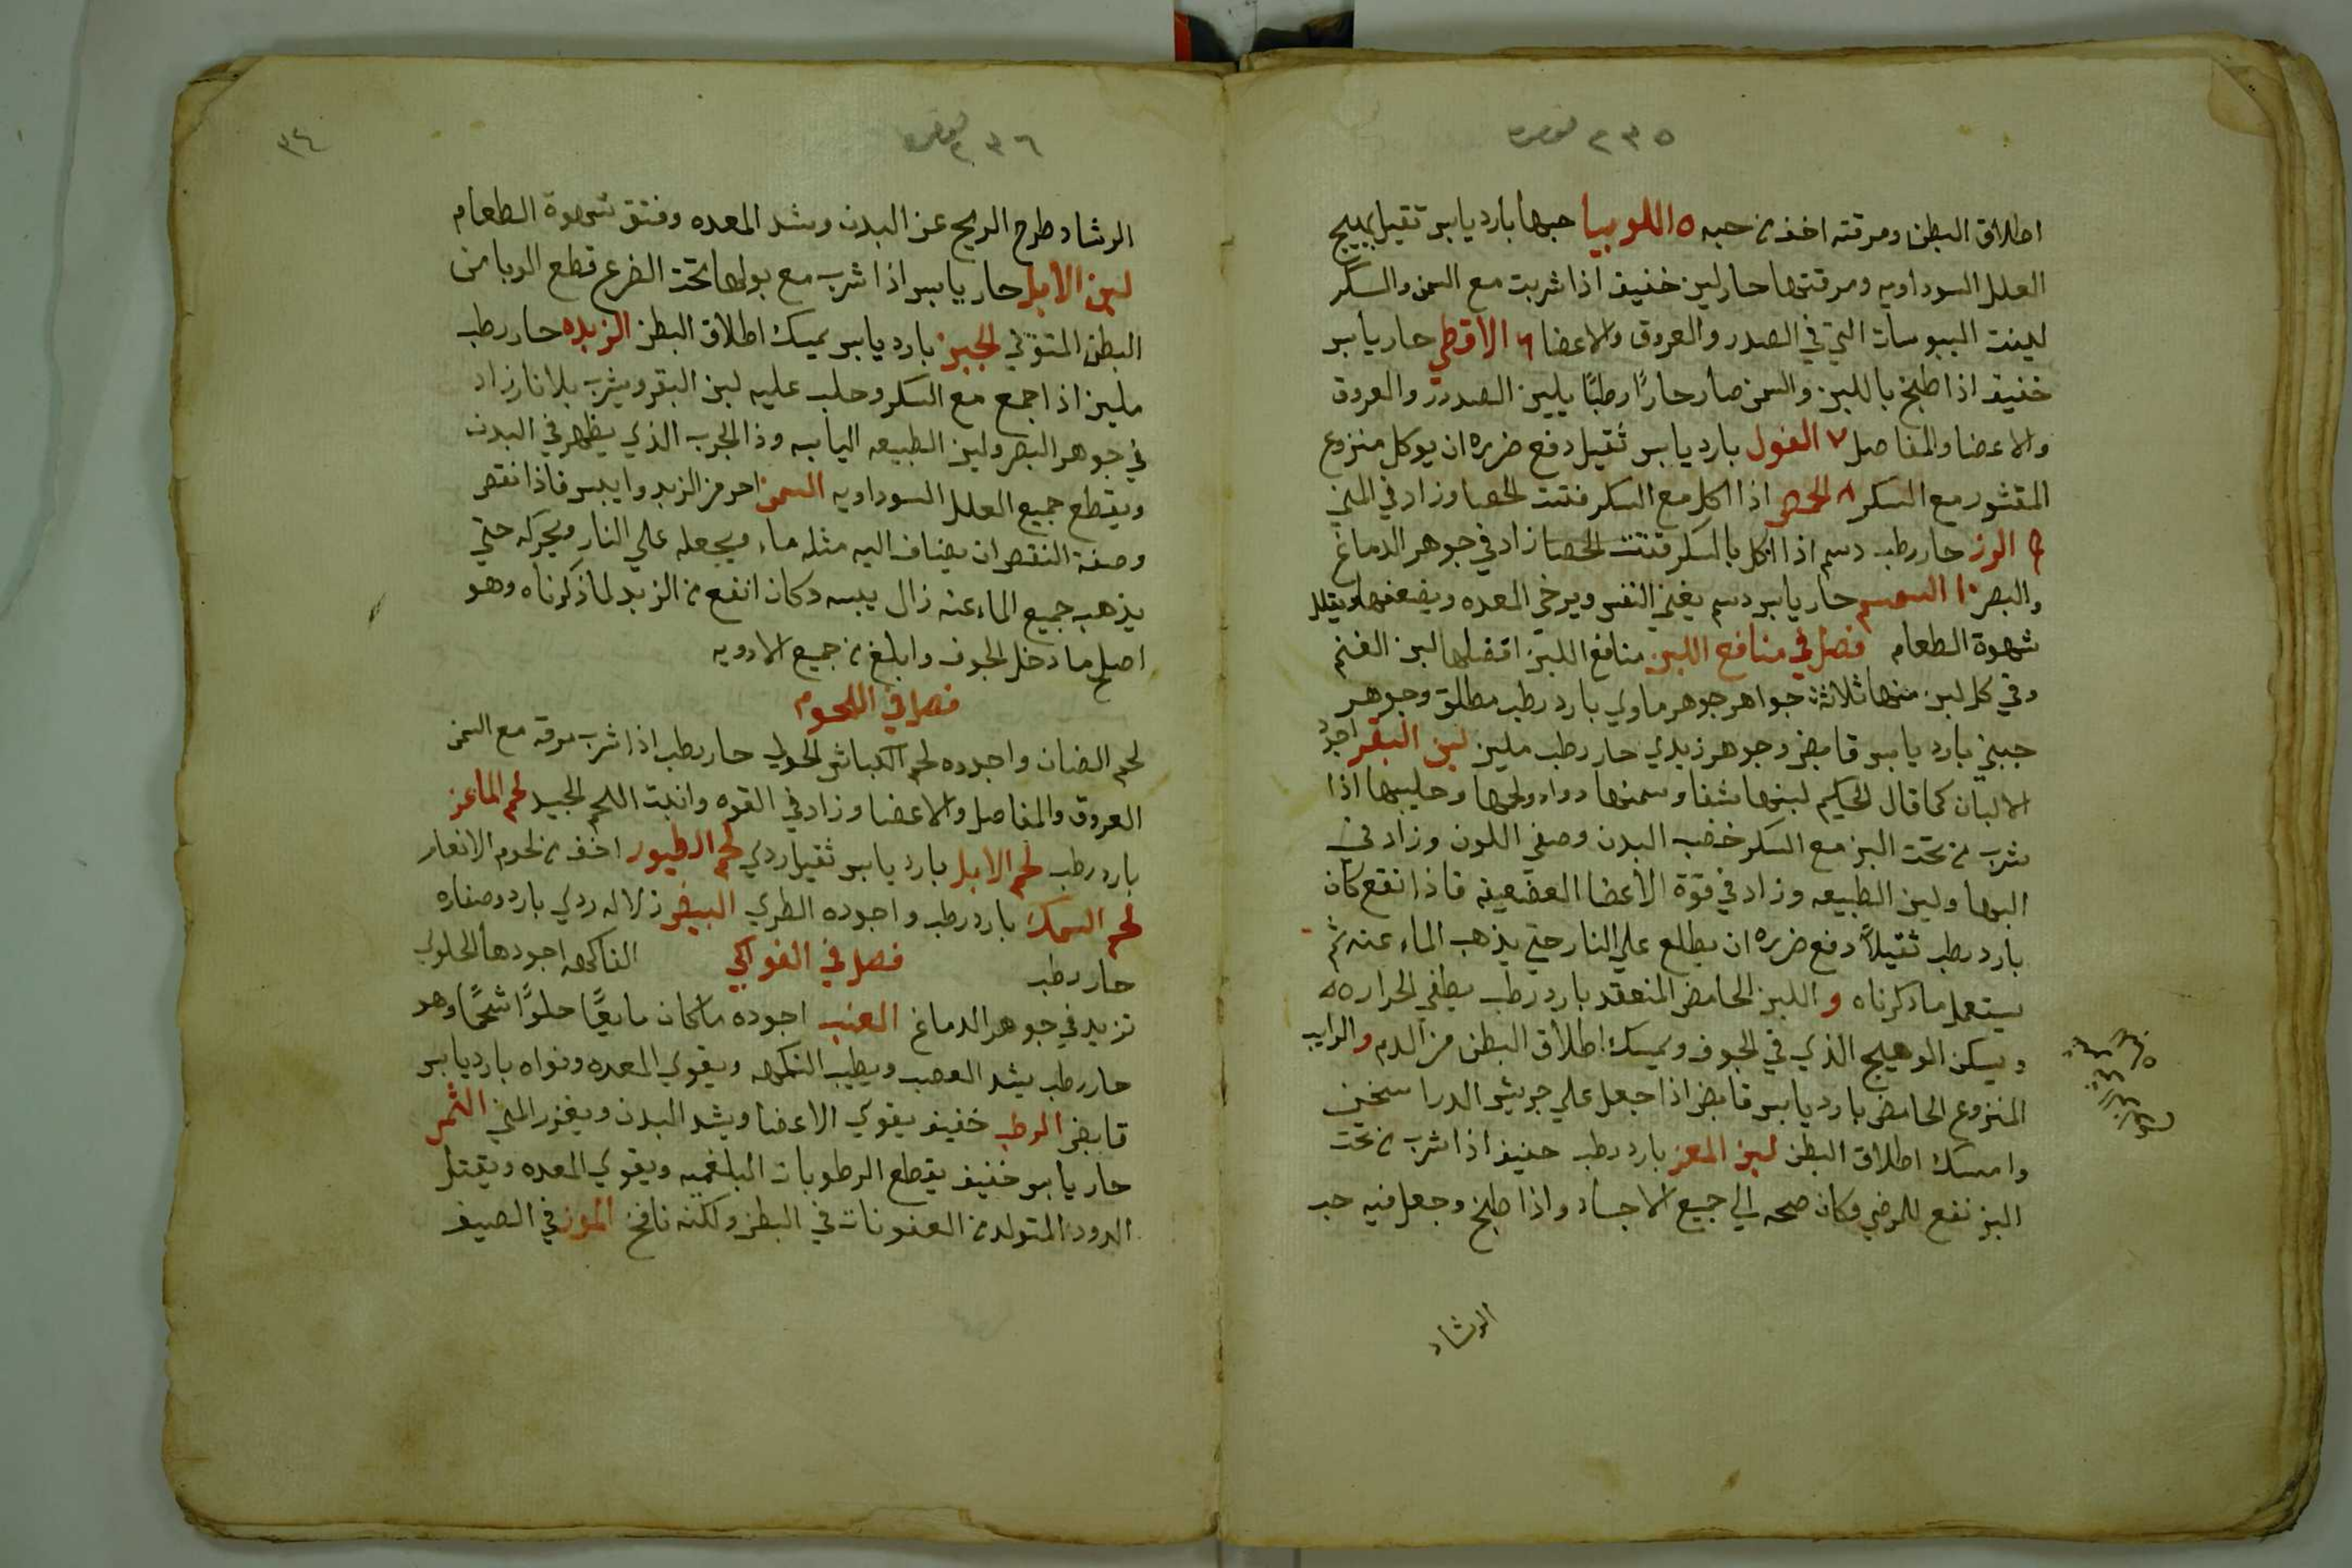 ٢٣٥
اطلاق البطن ومرقته اخف من حبه ٥ اللوبيا حبها بارد يابس ثقيل يهيج
العلل السوداويه ومرقتها حار لين خفيف اذا شربت مع السمن والسكر
لينت اليبوسات التي في الصدر والعروق والاعضا ٦ الاقطي حار يابس
خفيف اذا طبخ باللبن والسمن صار حارًا رطبًا يلين الصدور والعروق
والاعضا والمفاصل ٧ الفول بارد يابس ثقيل دفع ضرره ان يوكل منزوع
المقشور مع السكر ٨ الحمص اذا اكل مع السكر فتت الحصا وزاد في المني
٩ الوز حار رطب دسم اذا اكل بالسكر فتت الحصا زاد في جوهر الدماغ
والبصر ١٠ السمسم حار يابس دسم يغني النفس ويرخي المعده ويضعفها ويقلل
شهوة الطعام فصل في منافع اللبن منافع اللبن افضلها لبن الغنم
وفي كل لبن منها ثلاثة جواهر جوهر ماوي بارد رطب مطلق وجوهر
جبني بارد يابس قابض وجوهر زبدي حار رطب ملين لبن البقر اجود
الالبان كما قال الحكيم لبنها شفا وسمنها دوا ولحمها وحليبها اذا
شرب من تحت البز مع السكر خضب البدن وصفي اللون وزاد في
البها ولين الطبيعه وزاد في قوة الاعضا الضعيفه فاذا انقع كان
بارد رطب ثقيلاً دفع ضرره ان يطلع علي النار حتي يذهب الماء عنه ثم
يستعمل ما ذكرناه و اللبن الحامض المنعقد بارد رطب يطفي الحراره
ويسكن الوهيج الذي في الجوف ويمسك اطلاق البطن من الدم والرايب
المنزوع الحامض بارد يابس قابض اذا جعل علي جريش الدرا سخين
وامسك اطلاق البطن لبن المعز بارد رطب خفيف اذا شرب من تحت
البز نفع للمرضي وكان صحه الي جميع الاجساد واذا طبخ وجعل فيه حب
الرشاد
٢٣٦
٣٤
الرشاد طرح الريح عن البدن وشد المعده وفتق شهوة الطعام
لبن الابل حار يابس اذا شرب مع بولها تحت الضرع قطع الوبا من
البطن المتوفي الجبن بارد يابس يمسك اطلاق البطن الزبده حار رطب
ملين اذا جمع مع السكر وحلب عليه لبن البقر ويشرب بلا نار زاد
في جوهر البصر ولين الطبيعه اليابسه وذا الجرب الذي يظهر في البدن
ويقطع جميع العلل السوداويه السمن احر من الزبد وايبس فاذا نقص
وصفة النقص ان يضاف اليه مثله ماء ويجعله علي النار ويحركه حتي
يذهب جميع الماء عنه زال يبسه وكان انفع من الزبد لما ذكرناه وهو
اصلح ما دخل الجوف وابلغ من جميع الادويه
فصل في اللحوم
لحم الضان واجوده لحم الكباش الحولي حار رطب اذا شرب مرقه مع السمن
العروق والمفاصل والاعضا وزاد في القوه وانبت اللحم الجيد لحم الماعز
بارد رطب لحم الابل بارد يابس ثقيل ردي لحم الطيور اخف من لحوم الانعام
لحم السمك بارد رطب واجوده الطري البيض زلاله ردي بارد وصفاره
حار رطب فصل في الفواكي الفاكهه اجودها الحلو الي
تزيد في جوهر الدماغ العنب اجوده ما كان مايعًا حلوًا شحمًا وهو
حار رطب يشد العصب ويطيب النكهه ويقوي المعده ونواه بارد يابس
قابض الرطب خفيف يقوي الاعضا ويشد البدن ويغزر المني الثمر
حار يابس خفيف يقطع الرطوبات البلغميه ويقوي المعده ويقتل
الدود المتولد من العفونات في البطن ولكنه نافخ الموز في الصيف